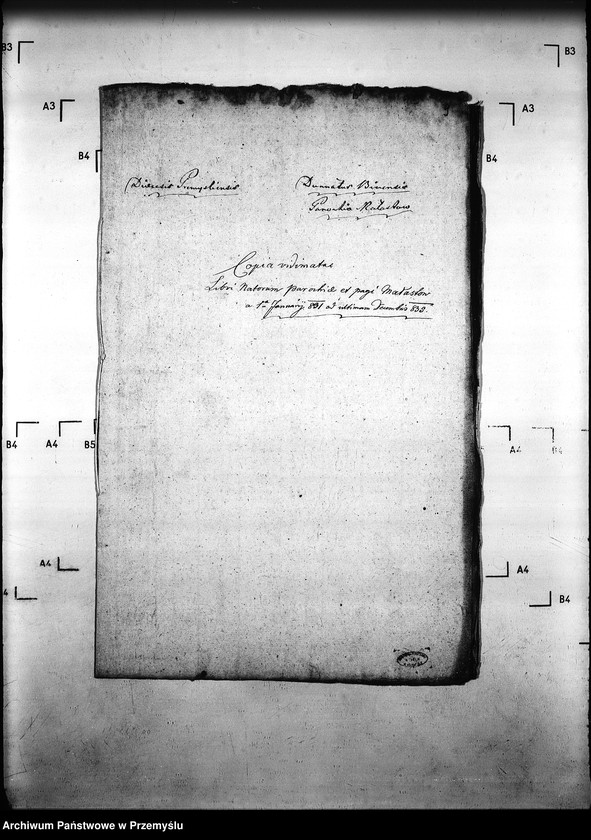 B3
B3
A3
A3
B4
B4
Diæcesis Premysliensis
Decanatus Biecensis
Parochia Małastow
Copia vidimata
Libri Natorum parochiæ et pagi Małastow
a 1ma Januarij 831 ad ultimam Decembris 832.
B4
A4
B5
A4
B4
A4
A4
4
B4
Archiwum Państwowe w Przemyślu